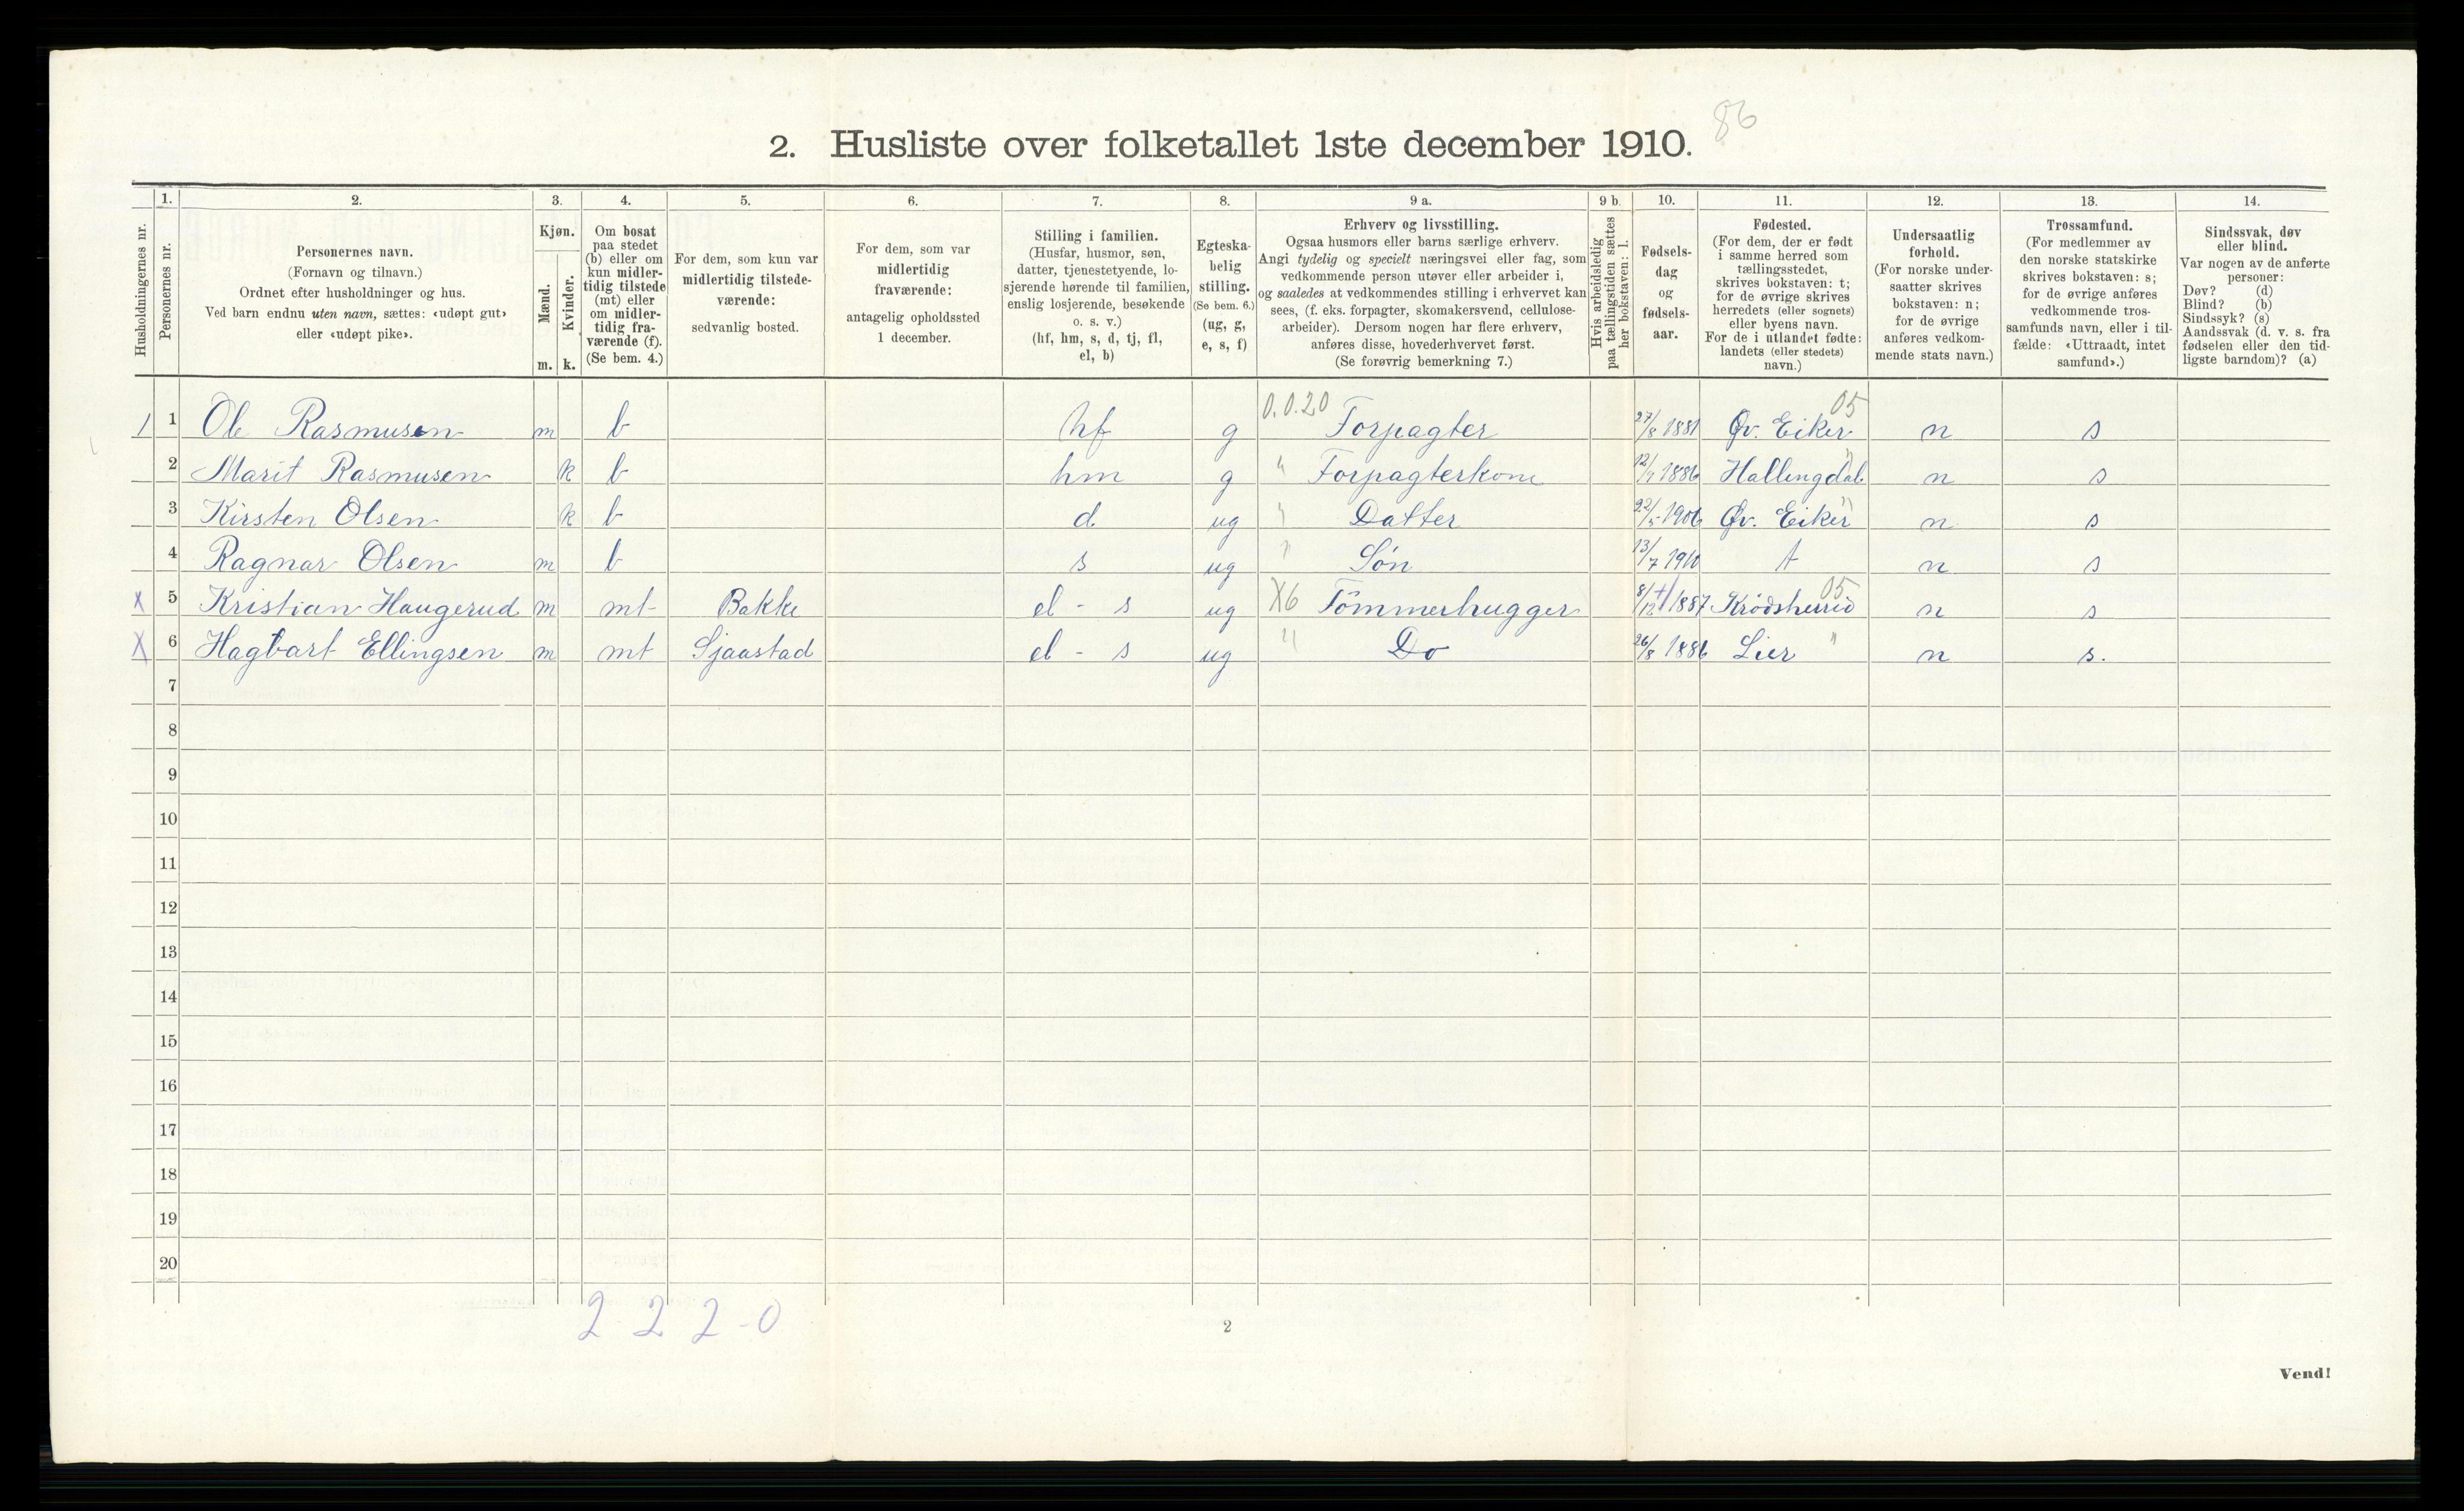 86
2. Husliste over folketallet 1ste december 1910.
Husholdningernes nr.
1.
Personernes nr.
2.
Personernes navn.
(Fornavn og tilnavn.)
Ordnet efter husholdninger og hus.
Ved barn endnu uten navn, sættes: «udøpt gut»
eller «udøpt pike».
3.
Kjøn.
Mænd.
m.
Kvinder.
k.
4.
Om bosat
paa stedet
(b) eller om
kun midler-
tidig tilstede
(mt) eller
om midler-
tidig fra-
værende (f).
(Se bem. 4.)
5.
For dem, som kun var
midlertidig tilstede-
værende:
sedvanlig bosted.
6.
For dem, som var
midlertidig
fraværende:
antagelig opholdssted
1 december.
7.
Stilling i familien.
(Husfar, husmor, søn,
datter, tjenestetyende, lo-
sjerende hørende til familien,
enslig losjerende, besøkende
o. s. v.)
(hf, hm, s, d, tj, fl,
el, b)
8.
Egteska-
belig
stilling.
(Se bem. 6.)
(ug, g,
e, s, f)
9 a.
Erhverv og livsstilling.
Ogsaa husmors eller barns særlige erhverv.
Angi tydelig og specielt næringsvei eller fag, som
vedkommende person utøver eller arbeider i,
og saaledes at vedkommendes stilling i erhvervet kan
sees, (f. eks. forpagter, skomakersvend, cellulose-
arbeider). Dersom nogen har flere erhverv,
anføres disse, hovederhvervet først.
(Se forøvrig bemerkning 7.)
9 b.
Hvis arbeidsledig
paa tællingstiden sættes
her bokstaven: l.
10.
Fødsels-
dag
og
fødsels-
aar.
11.
Fødested.
(For dem, der er født
i samme herred som
tællingsstedet,
skrives bokstaven: t;
for de øvrige skrives
herredets (eller sognets)
eller byens navn.
For de i utlandet fødte:
landets (eller stedets)
navn.)
12.
Undersaatlig
forhold.
(For norske under-
saatter skrives
bokstaven: n;
for de øvrige
anføres vedkom-
mende stats navn.)
13.
Trossamfund.
(For medlemmer av
den norske statskirke
skrives bokstaven: s;
for de øvrige anføres
vedkommende tros-
samfunds navn, eller i til-
fælde: «Uttraadt, intet
samfund».)
14.
Sindssvak, døv
eller blind.
Var nogen av de anførte
personer:
Døv? (d)
Blind? (b)
Sindssyk? (s)
Aandssvak (d. v. s. fra
fødselen eller den tid-
ligste barndom)? (a)
1 1 Ole Rasmusen m b hf g 0.0.20 Forpagter 27/8 1881 Øv. Eiker 05 n s
2 Marit Rasmusen k b hm g " Forpagterkone 12/9 1886 Hallingdal " n s
3 Kirsten Olsen k b d ug " Datter 22/5 1906 Øv. Eiker " n s
4 Ragnar Olsen m b s ug " Søn 13/7 1910 t n s
X 5 Kristian Haugerud m mt Bakke el - s ug X6 Tømmerhugger 8/12 1887 Krødsherred 05 n s
X 6 Hagbart Ellingsen m mt Sjaastad el - s ug " Do 26/8 1886 Lier " n s.
7
8
9
10
11
12
13
14
15
16
17
18
19
20
2 - 2 2 - 0
2
Vend!